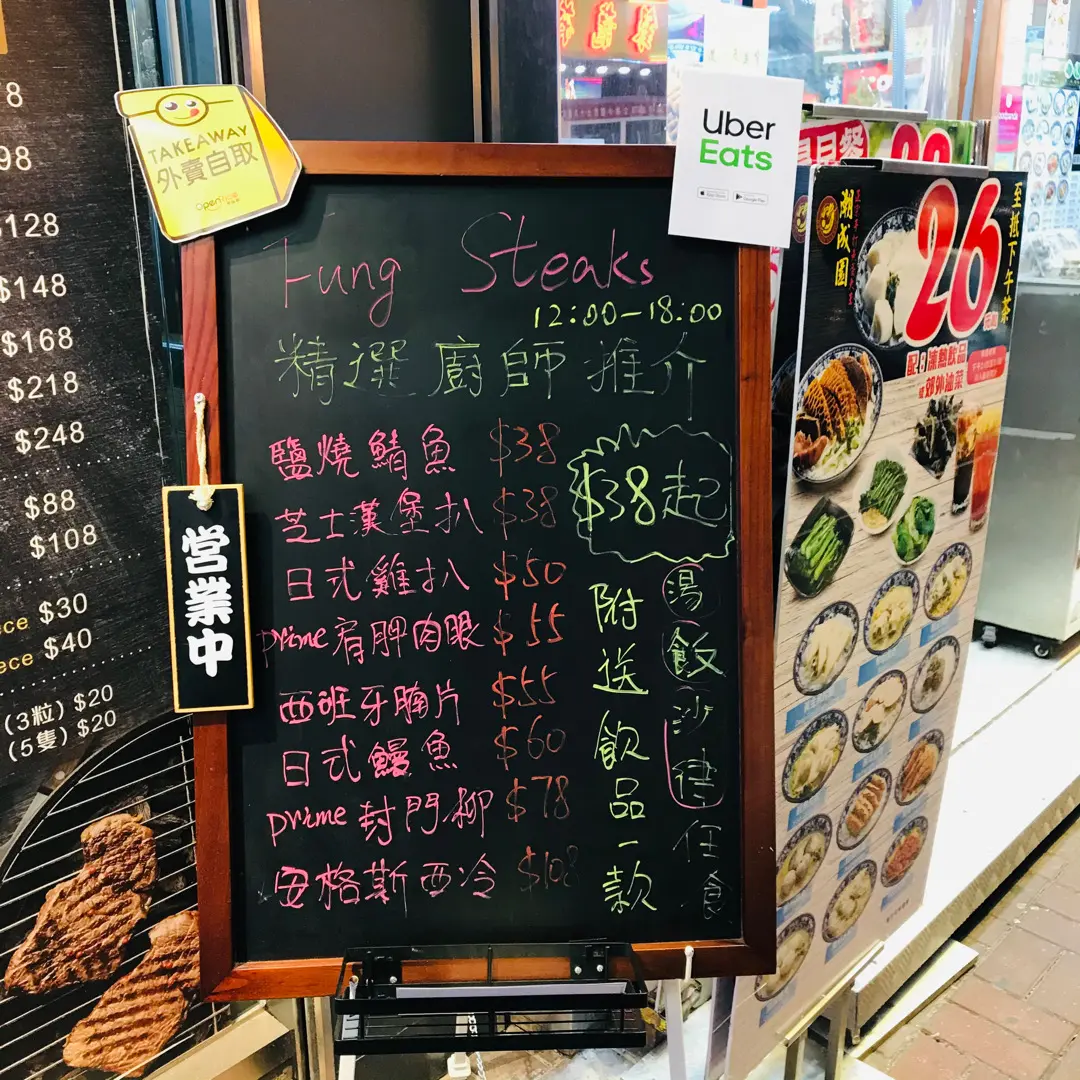 8
98
$128
$148
$168
$218
$248
$88
$108
ece $30
ece $40
(3粒) $20
(5隻) $20
TAKEAWAY
外賣自取
Openrice
營業中
Uber
Eats
Fung Steaks
12:00-18:00
精選廚師推介
鹽燒鯖魚 $38
芝士漢堡扒 $38
日式雞扒 $50
prime肩胛肉眼 $55
西班牙腩片 $55
日式鰻魚 $60
prime封門柳 $78
安格斯西冷 $108
$38起
附送飲品一款
湯飯沙律任食
潮成園
26
至抵下午茶
配凍熱飲品
或郊外油菜
早餐